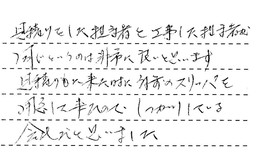 見積りをした担当者と工事した担当者が
同じというのは非常に良いと思います
見積りもりに来た時に持参のスリッパを
用意して来たので しっかりしている
会社だと思いました